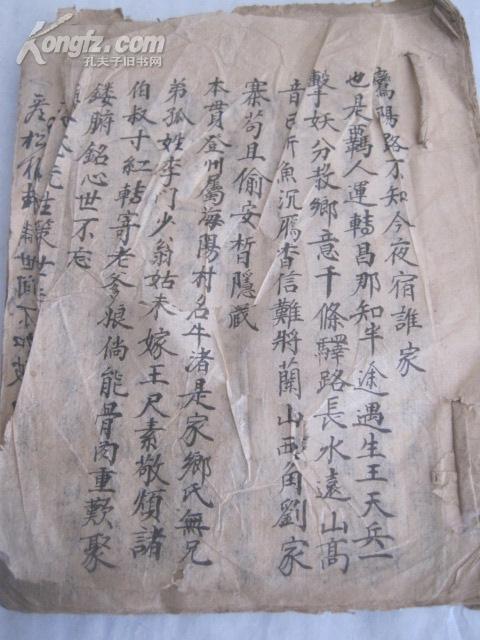 Kongfz.com
孔夫子旧书网
鷹陽路不知今夜宿誰家
也是羈人運轉昌那知半途遇生王天兵一
擊妖分救鄉意千條驛路長水遠山高
音已所魚沉雁杳信難將蘭山西角劉家
寨苟且偷安暫隱藏
本貫登州屬海陽村名牛渚是家鄉氏無兄
弟孤姓李门少翁姑未嫁王尺素敬煩諸
伯叔寸紅轉寄老爹娘倘能骨肉重歡聚
鏤腑銘心世不忘